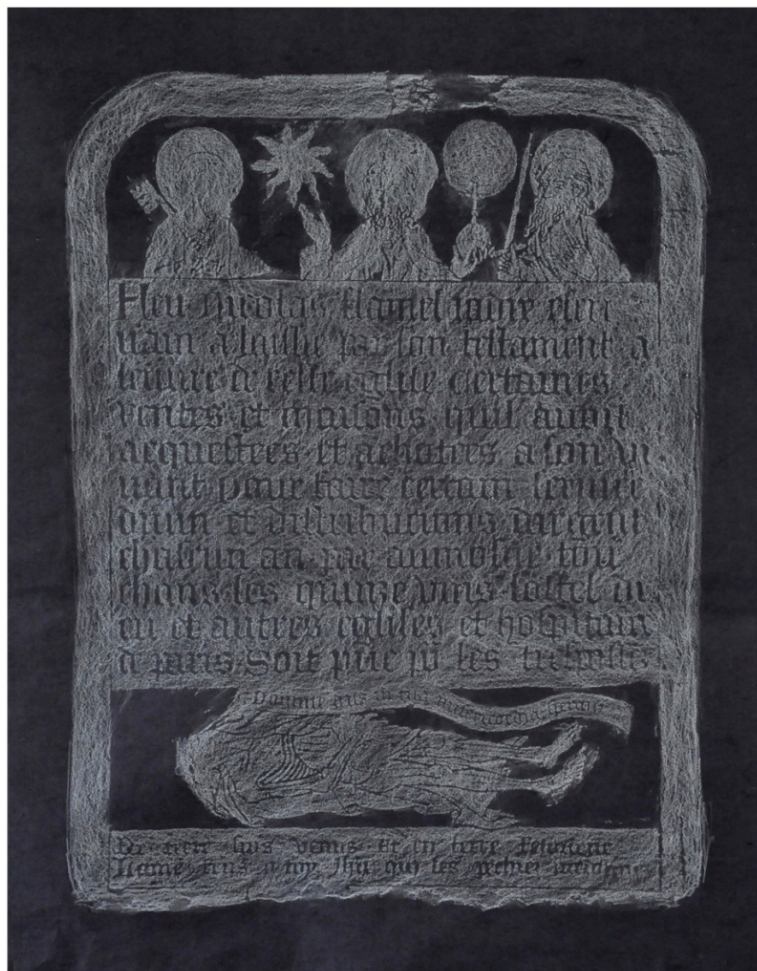 Feu nicolas flamel jadiz escri
uain a laissie par son testament a
leuure de ceste eglise certaines
rentes et maisons quil auoit
acquestees et achatees a son vi
uant pour faire certain seruice
diuin et distribucions dargent
chascun an par aumosne tou
chans les quinze vins lostel di
eu et autres eglises et hospitaux
a paris Soit prie pour les trespasses
Domine deus in tua misericordia speraui
De terre suis venus et en terre retourne
Lame rens a toy jhu qui les pechiez pardonne